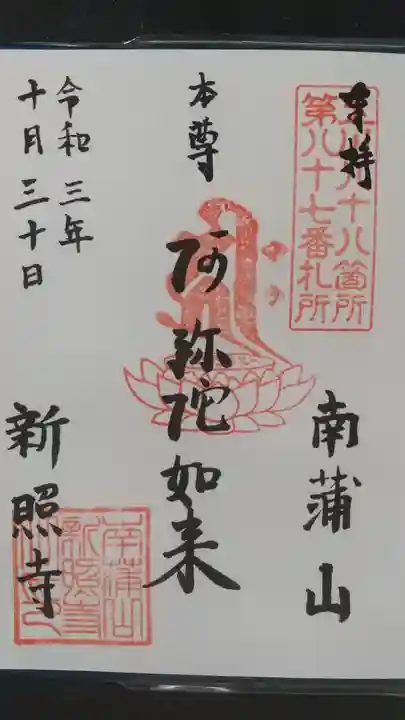 奉拝
三川八十八箇所
第八十七番札所
南蒲山
本尊
阿弥陀如来
令和三年
十月三十日
新照寺
南蒲山
新照寺